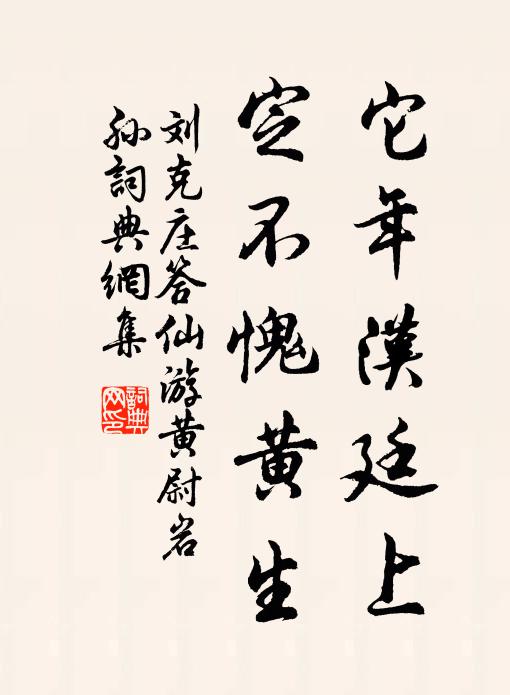 它年漢廷上
定不愧黄生
刘克庄答仙游黄尉岩
孙詞典網集
詞典
网印